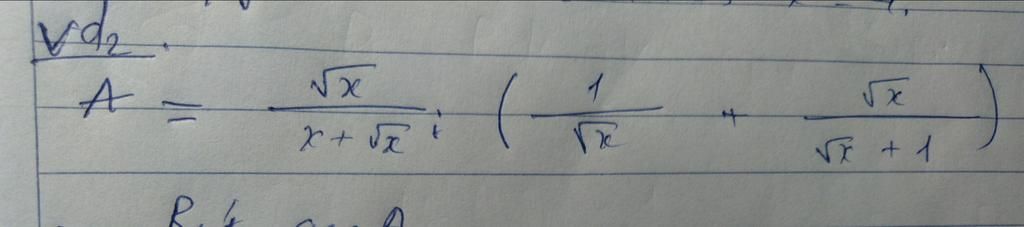 Vd2.
A = √x / (x + √x) : (1 / √x + √x / (√x + 1))